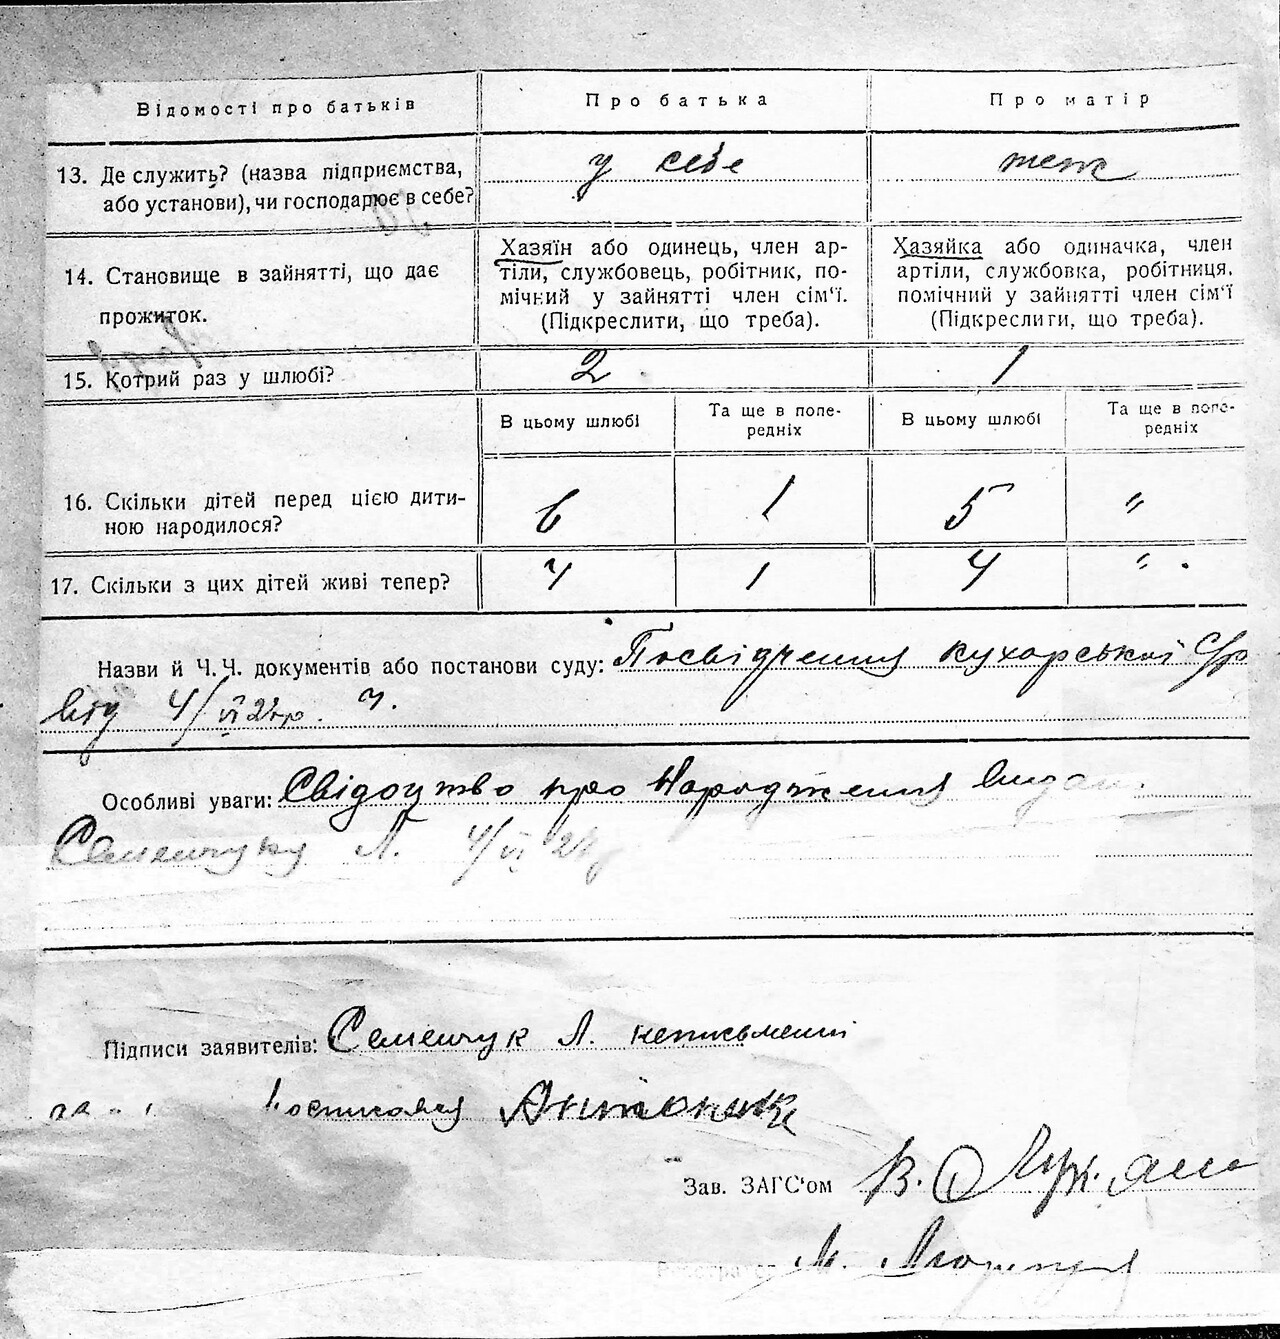 Відомості про батьків
Про батька
Про матір
13. Де служить? (назва підприємства,
або установи), чи господарює в себе?
у себе
теж
14. Становище в зайнятті, що дає
прожиток.
Хазяїн або одинець, член ар-
тіли, службовець, робітник, по-
мічний у зайнятті член сім'ї.
(Підкреслити, що треба).
Хазяйка або одиначка, член
артіли, службовка, робітниця,
помічний у зайнятті член сім'ї
(Підкреслити, що треба).
15. Котрий раз у шлюбі?
2
1
В цьому шлюбі
Та ще в попе-
редніх
В цьому шлюбі
Та ще в попе-
редніх
16. Скільки дітей перед цією дити-
ною народилося?
6
1
5
"
17. Скільки з цих дітей живі тепер?
4
1
4
"
Назви й Ч.Ч. документів або постанови суду: Посвідчення кухарської С/р
від 4/VI
Особливі уваги: Свідоцтво про народження видан
Семенчуку Л. 4/VI
Підписи заявителів: Семенчук Л. неписьменні
Зав. ЗАГС'ом В.
М.